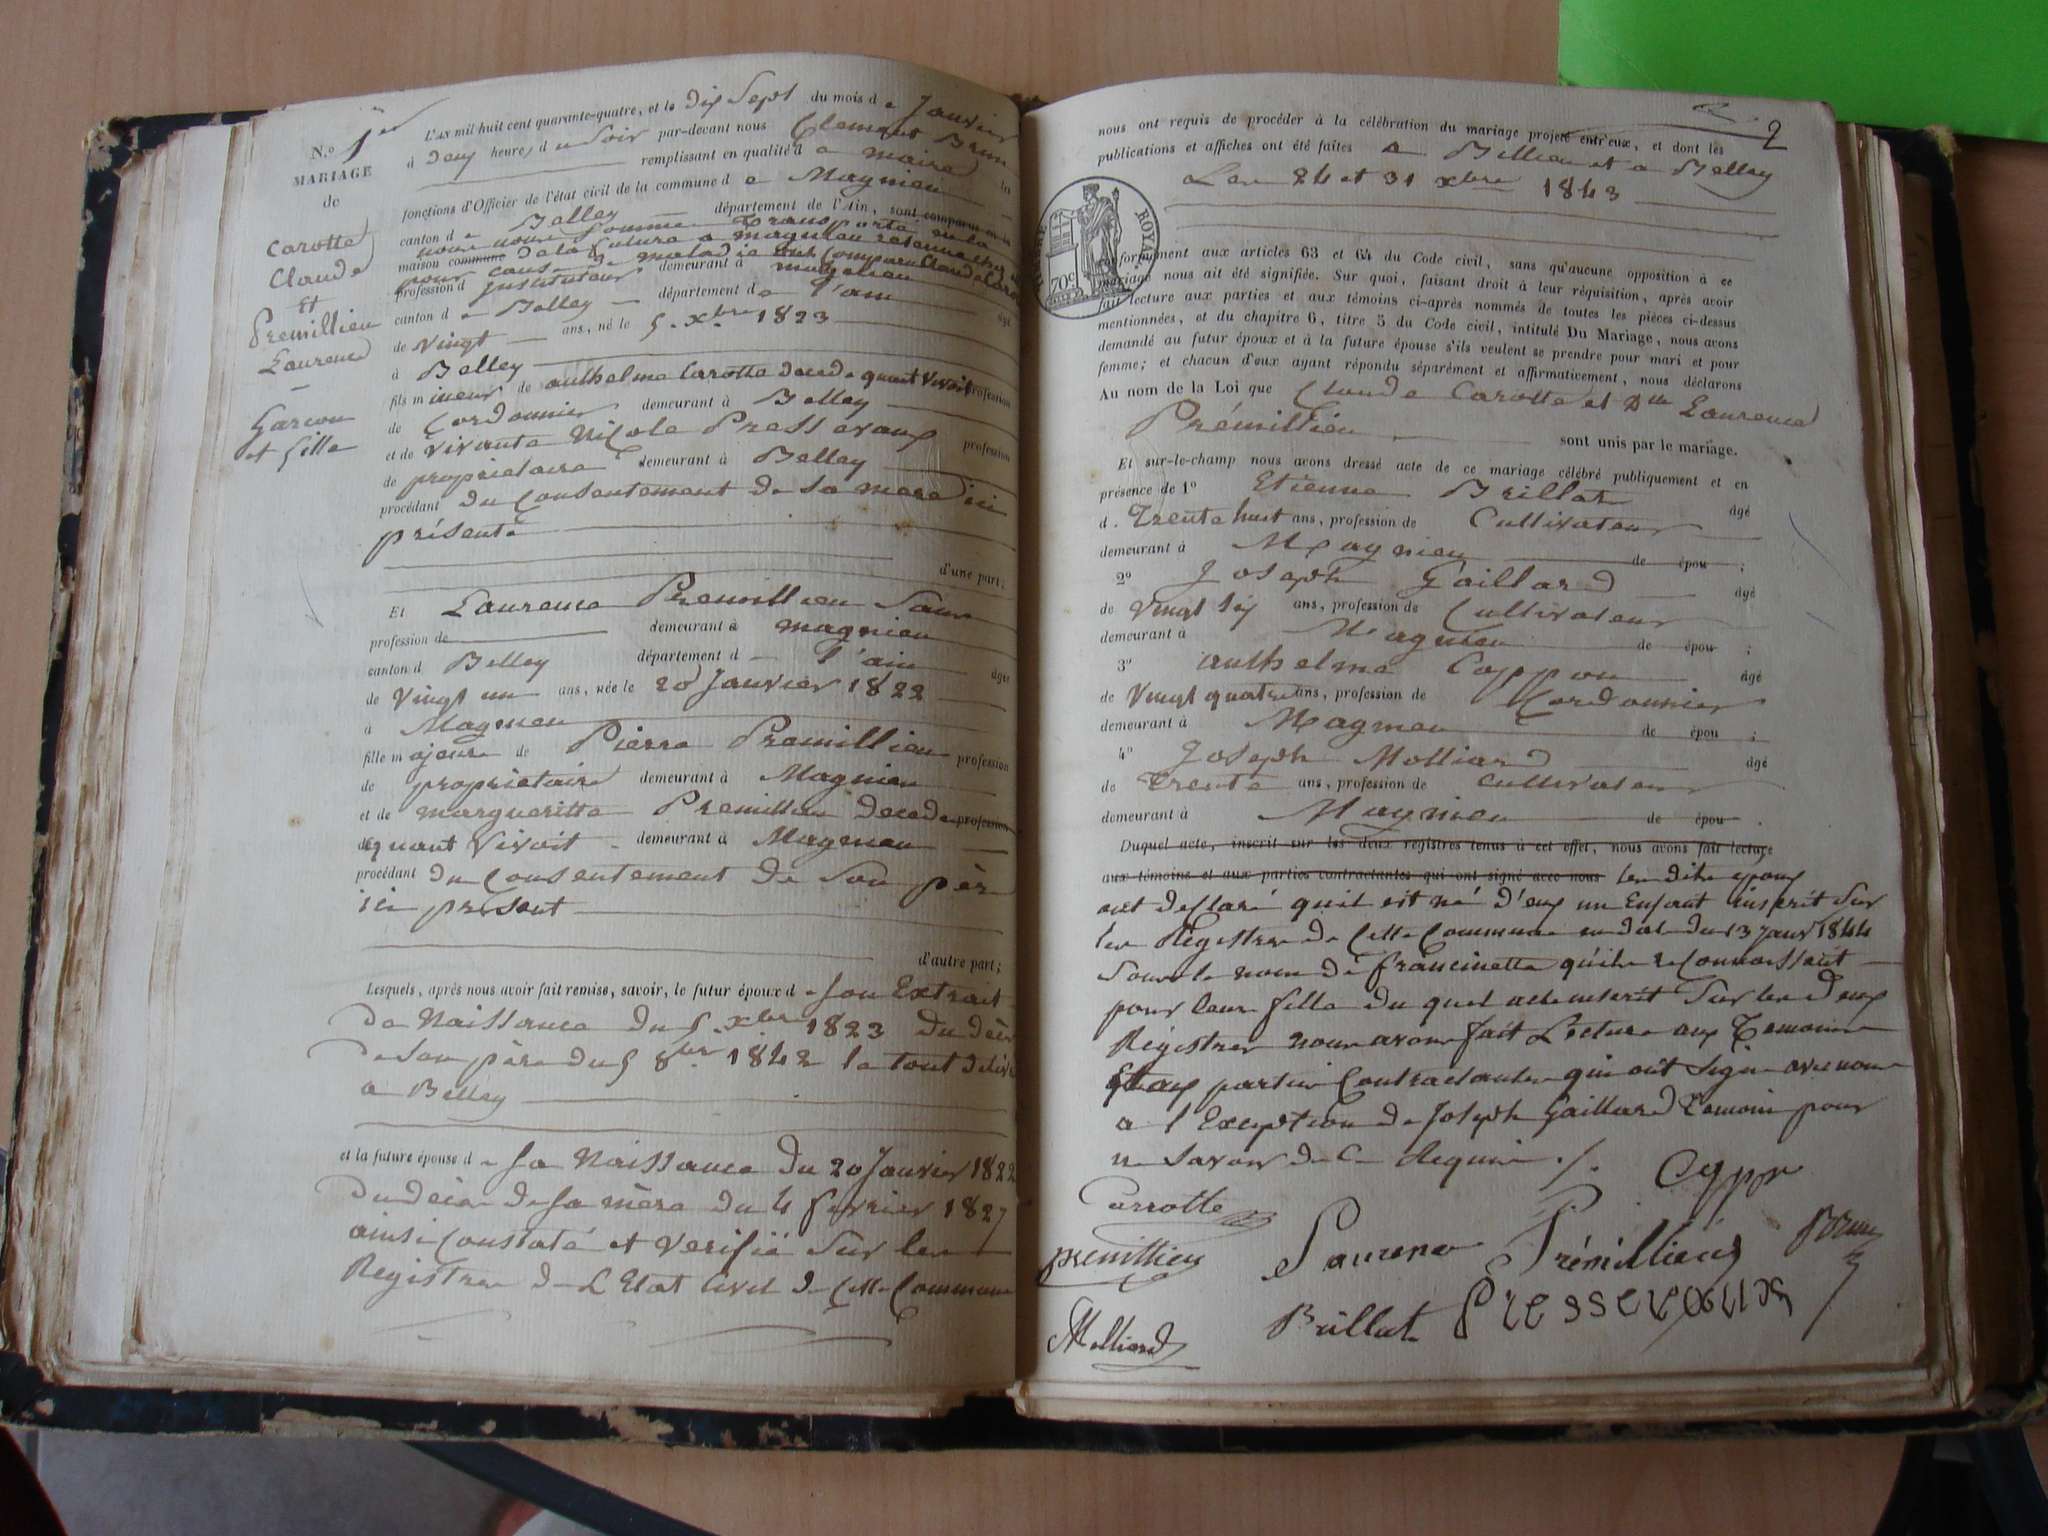 N.o 1er
MARIAGE
de
Carotte
Claude
et
Premillieu
Laurence
Garcon
et fille
L'AN mil huit cent quarante-quatre, et le dix Sept du mois de Janvier
à deux heures du Soir par-devant nous Clement Brun
remplissant en qualité de maire les
fonctions d'Officier de l'état civil de la commune de Magnieu
canton de Belley département de l'Ain, sont comparus en la
nous nous Sommes Transporté en la
maison commune de la future a magnieu retenue chez elle
pour cause de maladie ont Comparu Claude Carotte
profession d instituteur demeurant à magnieu
canton de Belley département de l'ain âgé
de vingt ans, né le 5 xbre 1823
à Belley
fils mineur de anthelme Carotte decede quant vivoit profession
de Cordonnier demeurant à Belley
et de vivante Nicole Pressavaux profession
de proprietaire demeurant à Belley
procédant du Consentement de Sa mere ici
présente
d'une part;
Et Laurence Premillieu Sans
profession de demeurant à magnieu
canton d Belley département d l'ain âgée
de vingt un ans, née le 20 Janvier 1822
à Magnieu
fille majeure de Pierre Premillieu profession
de proprietaire demeurant à Magnieu
et de margueritte Premillieu decede profession
de quant vivoit demeurant à Magnieu
procédant du Consentement de Son père
ici présent
d'autre part;
Lesquels, après nous avoir fait remise, savoir, le futur époux de Son Extrait
De Naissance du 5 xbre 1823 Du décès
de Son père du 5 8bre 1842 le tout delivré
a Belley
et la future épouse de Sa Naissance du 20 Janvier 1822
Du décès de Sa mère du 4 fevrier 1827
ainsi Constaté et verifié Sur les
Registres de L'Etat Civil de Cette Commune
2
nous ont requis de procéder à la célébration du mariage projeté entr'eux, et dont les
publications et affiches ont été faites a Billieu et a Belley
Les 24 et 31 xbre 1843
TIMBRE ROYAL
70c
Conformément aux articles 63 et 64 du Code civil, sans qu'aucune opposition à ce
mariage nous ait été signifiée. Sur quoi, faisant droit à leur réquisition, après avoir
fait lecture aux parties et aux témoins ci-après nommés de toutes les pièces ci-dessus
mentionnées, et du chapitre 6, titre 5 du Code civil, intitulé Du Mariage, nous avons
demandé au futur époux et à la future épouse s'ils veulent se prendre pour mari et pour
femme; et chacun d'eux ayant répondu séparément et affirmativement, nous déclarons
Au nom de la Loi que Claude Carotte et Dlle Laurence
Prémillieu sont unis par le mariage.
Et sur-le-champ nous avons dressé acte de ce mariage célébré publiquement et en
présence de 1o Etienne Brillat âgé
d. Trente huit ans, profession de Cultivateur
demeurant à Magnieu de épou ;
2o Joseph Gaillard âgé
de vingt six ans, profession de Cultivateur
demeurant à Magnieu de épou ;
3o anthelme Coppon âgé
de vingt quatre ans, profession de Cordonnier
demeurant à Magnieu de épou ;
4o Joseph Molliard âgé
de Trente ans, profession de Cultivateur
demeurant à Magnieu de épou .
Duquel acte, inscrit sur les deux registres tenus à cet effet, nous avons fait lecture
aux témoins et aux parties contractantes qui ont signé avec nous les dits epoux
ont déclaré qu'il est né d'eux un Enfant inscrit Sur
les Régistres de Cette Commune en date du 13 janv 1844
Sous le nom de francinette qu'ils reconnoissent
pour leur fille du quel acte inscrit Sur les deux
Régistres nous avons fait Lecture aux Temoins
Et aux parties Contractantes qui ont Signé avec nous
a l'Exception de Joseph Gaillard Temoin pour
ne savoir de Ce Requis ./.
Carrotte
Coppon
premillieu
Laurence Prémillieux
Brun
Molliard
Brillat
Pressavaux